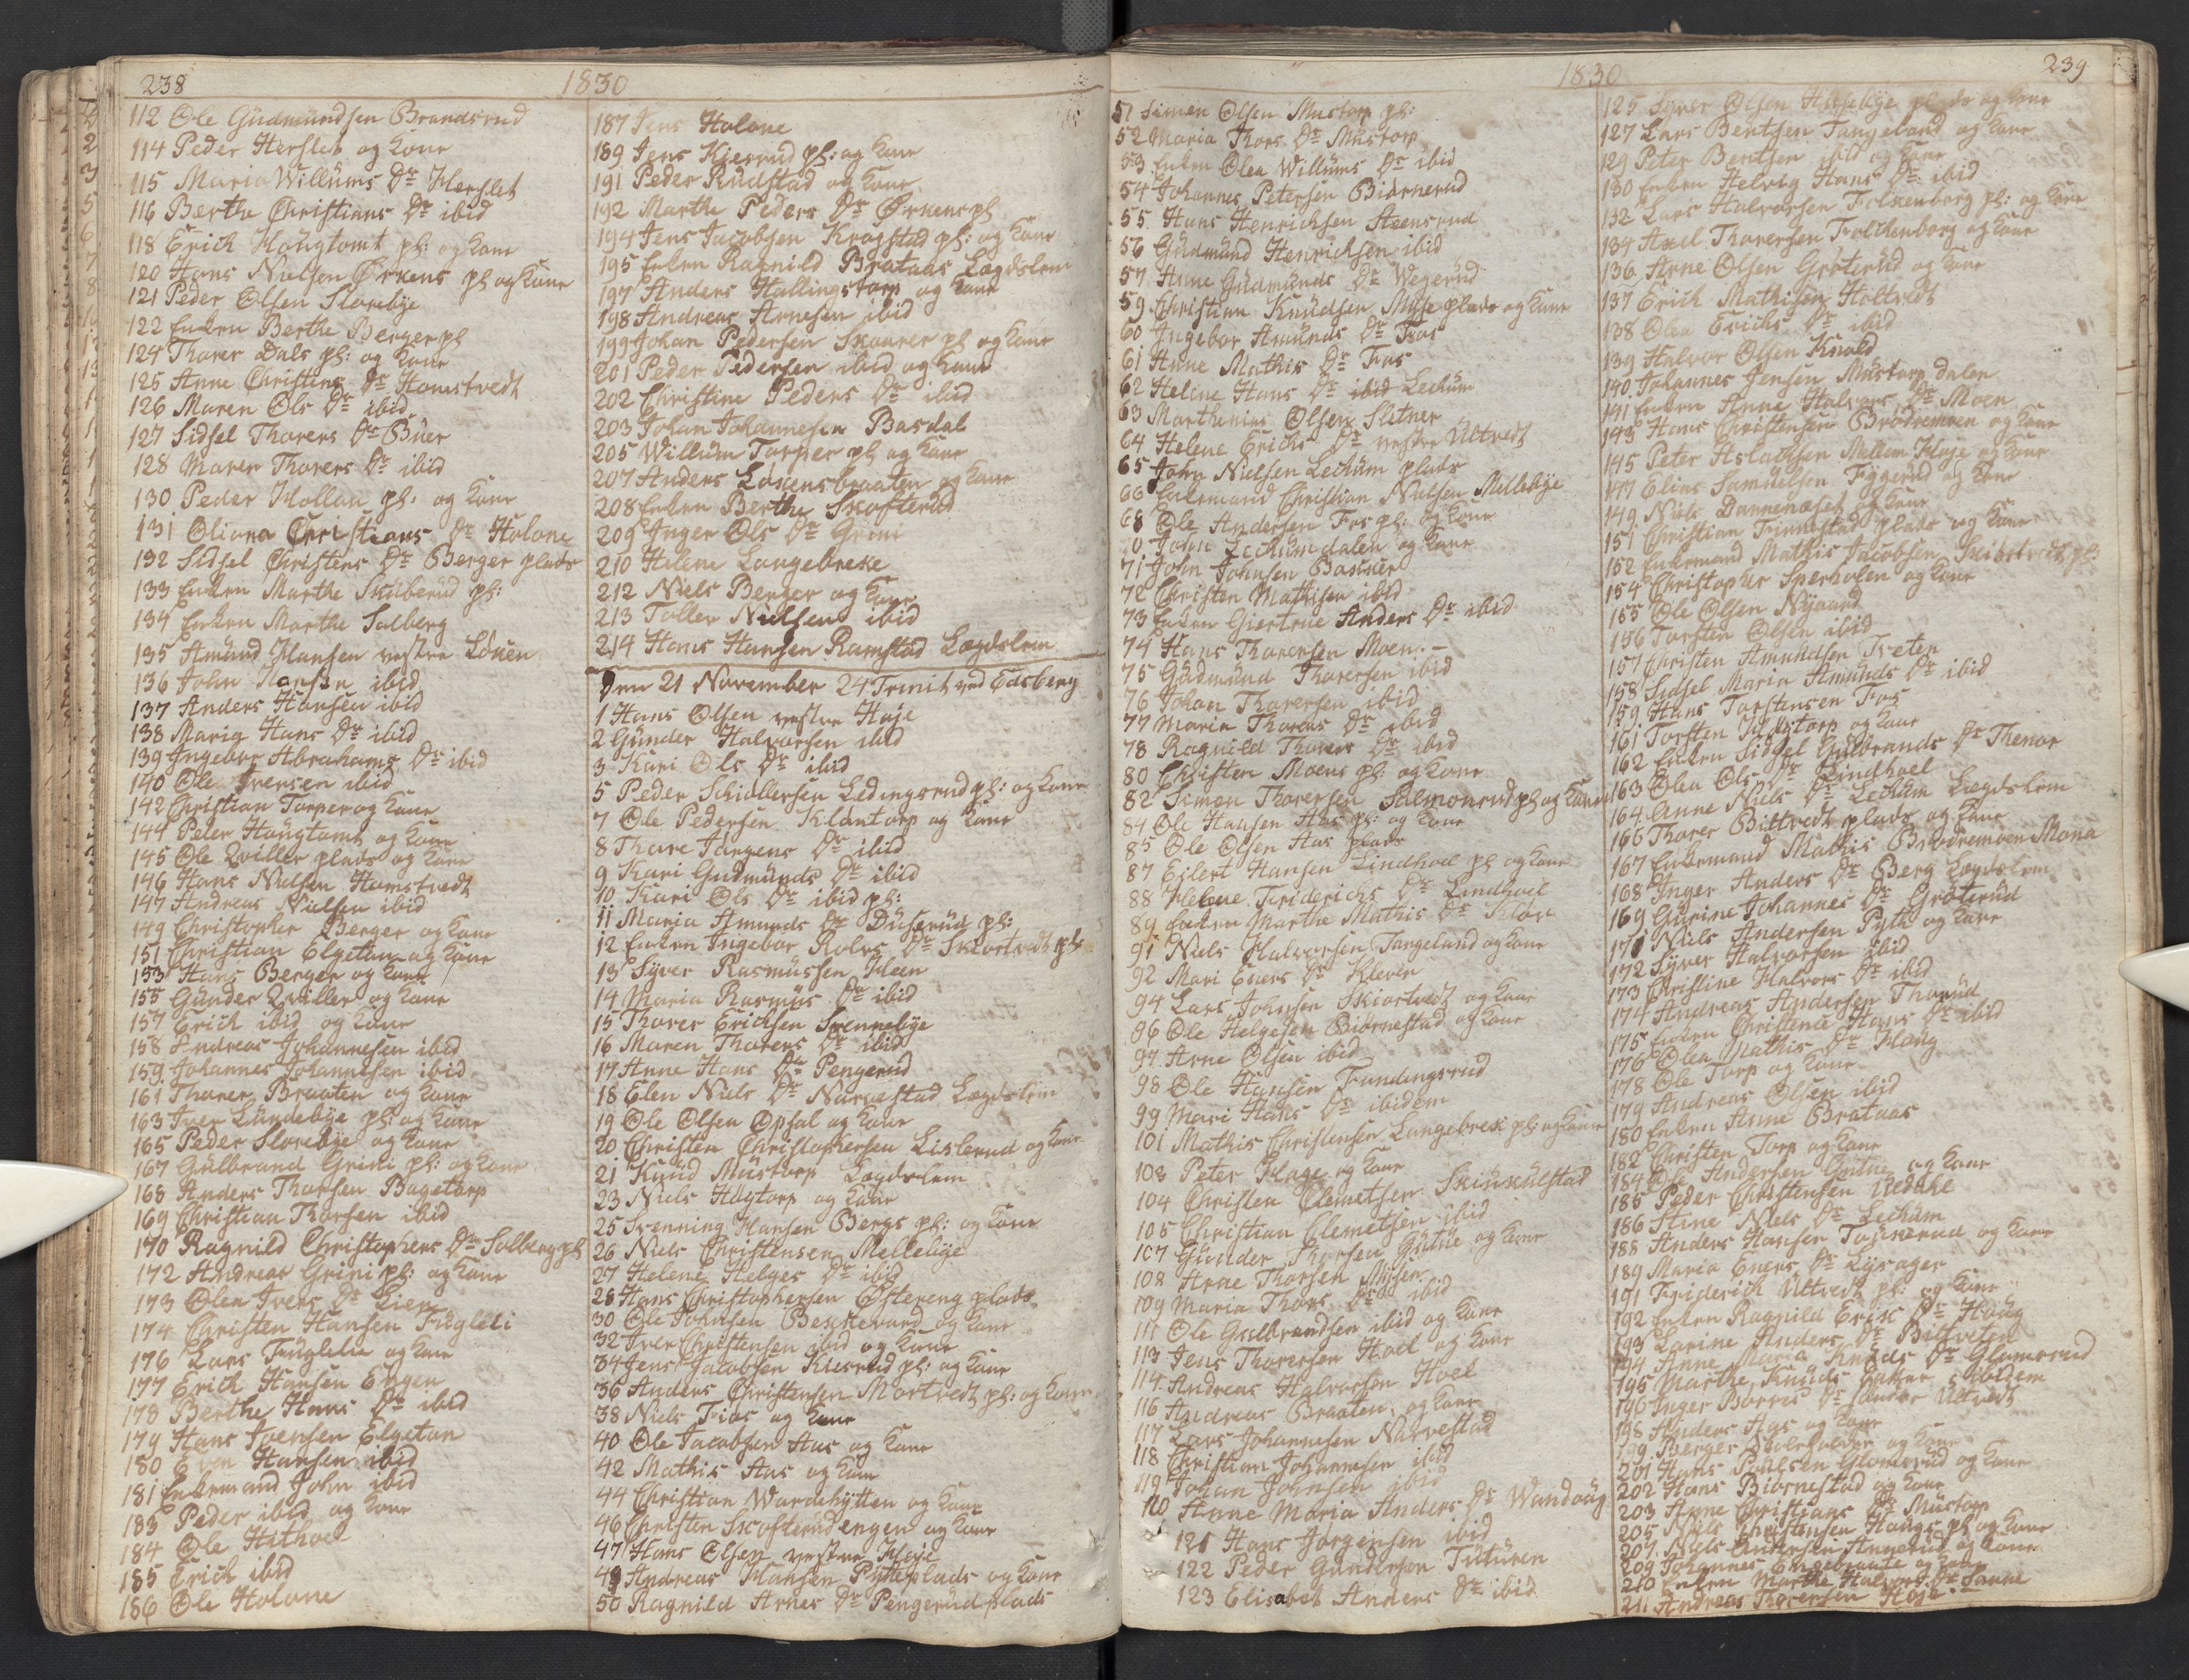 238
1830
112 Ole Gudmundsen Brandsrud
114 Peder Herslet og Kone
115 Maria Willums Dr Herslet
116 Berthe Christians Dr ibid
118 Erich Haugtomt pl: og Kone
120 Hans Nielsen Ørkens pl og Kone
121 Peder Olsen Slorebye
122 Enken Berthe Berger pl
124 Thorer Dals pl: og Kone
125 Anne Christens Dr Hamstvedt
126 Maren Ols Dr ibid
127 Sidsel Thorers Dr Buer
128 Maren Thorers Dr ibid
130 Peder Mollan pl: og Kone
131 Oliana Christians Dr Holone
132 Sidsel Christens Dr Berger plads
133 Enken Marthe Skuberud pl:
134 Enken Marthe Solberg
135 Amund Hansen vestre Løken
136 John Hansen ibid
137 Anders Hansen ibid
138 Marig Hans Dr ibid
139 Ingebor Abrahams Dr ibid
140 Ole Iversen ibid
142 Christian Torper og Kone
144 Peter Haugtomt og Kone
145 Ole Qviller plads og Kone
146 Hans Nielsen Hamstvedt
147 Andreas Nielsen ibid
149 Christopher Berger og Kone
151 Christian Elgetun og Kone
153 Hans Berger og Kone
155 Gunder Qviller og Kone
157 Erich ibid og Kone
158 Andreas Johannesen ibid
159 Johannes Johannesen ibid
161 Thorer Braaten og Kone
163 Iver Lundebye pl: og Kone
165 Peder Slorebye og Kone
167 Gulbrand Grini pl: og Kone
168 Anders Thorsen Bagetorp
169 Christian Thorsen ibid
170 Ragnild Christophers Dr Solberg pl
172 Andreas Grini pl: og Kone
173 Olea Ivers Dr Lien
174 Christen Hansen Fugleli
176 Lars Fuglelie og Kone
177 Erich Hansen Engen
178 Berthe Hans Dr ibid
179 Hans Joensen Elgetun
180 Even Hansen ibid
181 Enkemand John ibid
183 Peder ibid og Kone
184 Ole Hithoel
185 Erich ibid
186 Ole Holone
187 Jens Holone
189 Jens Kierrud pl: og Kone
191 Peder Rudstad og Kone
192 Marthe Peders Dr Ørkens pl
194 Jens Jacobsen Kragstad pl: og Kone
195 Enken Ragnild Brataas Lægdslem
197 Anders Hallingstorp og Kone
198 Andreas Arnesen ibid
199 Johan Pedersen Skaarer pl og Kone
201 Peder Pedersen ibid og Kone
202 Christine Peders Dr ibid
203 Johan Johannesen Basdal
205 Willum Torper pl og Kone
207 Anders Løkensbraaten og Kone
208 Enken Berthe Skofterud
209 Inger Ols Dr Grini
210 Helene Langebreke
212 Niels Berger og Kone
213 Toller Nielsen ibid
214 Hans Hansen Ramstad Lægdslem
Den 21 November 24 Trinit ved Edsberg
1 Hans Olsen vestre Høje
2 Gunder Halvorsen ibid
3 Kari Ols Dr ibid
5 Peder Schiøllersen Ledingsrud pl: og Kone
7 Ole Pedersen Klantorp og Kone
8 Thore Jørgens Dr ibid
9 Kari Gudmunds Dr ibid
10 Kari Ols Dr ibid pl:
11 Maria Amunds Dr Duserud pl:
12 Enken Ingebor Rolvs Dr Skiortvedt pl
13 Syver Rasmussen Kleen
14 Maria Rasmus Dr ibid
15 Thorer Erichsen Svennebye
16 Maren Thorers Dr ibid
17 Anne Hans Dr Pengerud
18 Elen Niels Dr Narvestad Lægdslem
19 Ole Olsen Opsal og Kone
20 Christen Christophersen Lislerud og Kone
21 Knud Mustorp Lægdslem
23 Niels Høytorp og Kone
25 Svenning Hansen Bergs pl: og Kone
26 Niels Christensen Mellebye
27 Helene Helges Dr ibid
28 Hans Christophersen Østereng plads
30 Ole Johnsen Bekkevard og Kone
32 Iver Christensen ibid og Kone
34 Jens Jacobsen Kierrud pl: og Kone
36 Anders Christensen Mortvedt pl: og Kone
38 Niels Fios og Kone
40 Ole Jacobsen Aas og Kone
42 Mathis Aas og Kone
44 Christian Wardehytten og Kone
46 Christen Skofterudengen og Kone
47 Hans Olsen vestre Høje
49 Andreas Hansen Pytteplads og Kone
50 Ragnild Arnes Dr Pengerud plads
1830
239
51 Simen Olsen Mustorp pl:
52 Maria Thors Dr Mustorp
53 Enken Olea Willums Dr ibid
54 Johannes Petersen Biørnerud
55 Hans Henrichsen Steensrud
56 Gudmund Henrichsen ibid
57 Anne Gudmunds Dr Wegerud
59 Christian Knudsen Mysc plads og Kone
60 Ingebor Amunds Dr Fos
61 Anne Mathis Dr Fos
62 Helene Hans Dr ibid Lechum
63 Marthinius Olsen Slitner
64 Helene Erichs Dr vestre Ultvedt
65 John Nielsen Lechum plads
66 Enkemand Christian Nielsen Mellebye
68 Ole Andersen Fos pl: og Kone
70 John Lechumdalen og Kone
71 John Johnsen Bakker
72 Christen Mathisen ibid
73 Enken Giertrue Anders Dr ibid
74 Hans Thorersen Moen
75 Gudmund Thorersen ibid
76 Johan Thorersen ibid
77 Maria Thorers Dr ibid
78 Ragnild Thorers Dr ibid
80 Christen Moens pl: og Kone
82 Simen Thorersen Salmonrud pl og Kone
84 Ole Hansen Aas pl: og Kone
85 Ole Olsen Aas plads
87 Eilert Hansen Lindhoel pl og Kone
88 Helene Friderichs Dr Lindhoel
89 Enken Marthe Mathis Dr Kløv
91 Niels Halvorsen Tangeland og Kone
92 Mari Eners Dr Kleven
94 Lars Johnsen Skiortvedt og Kone
96 Ole Helgesen Biørnestad og Kone
97 Arne Olsen ibid
98 Ole Hansen Fundingsrud
99 Mari Hans Dr ibidem
101 Mathis Christensen Langebrek pl: og Kone
103 Peter Hage og Kone
104 Christen Clemetsen Skinkulstad
105 Christian Clemetsen ibid
107 Gunder Thorsen Gutue og Kone
108 Arne Thorsen Mysen
109 Maria Thors Dr ibid
111 Ole Gulbrandsen ibid og Kone
113 Jens Thorersen Hoel og Kone
114 Andreas Halvorsen Hoel
116 Andreas Braaten og Kone
117 Lars Johannesen Narvestad
118 Christian Johannesen ibid
119 Johan Johnsen ibid
120 Anne Maria Anders Dr Wandaug
121 Hans Jørgensen ibid
122 Peder Gundersen Tuturen
123 Elisabet Anders Dr ibid
125 Syver Olsen Hasebye plads og Kone
127 Lars Bentsen Tangeland og Kone
129 Peter Bentsen ibid og Kone
130 Enken Helvig Hans Dr ibid
132 Lars Halvorsen Folkenborg pl: og Kone
134 Axel Thorersen Folkenborg og Kone
136 Arne Olsen Grøterud og Kone
137 Erich Mathisen Holtvedt
138 Olea Erichs Dr ibid
139 Halvor Olsen Knold
140 Johannes Jensen Mustorp dalen
141 Enken Anne Halvors Dr Moen
143 Hans Christensen Brødremoen og Kone
145 Peter Aslachsen Mellem Høje og Kone
147 Elias Samuelsen Fygerud og Kone
149 Niels Dannenæset og Kone
151 Christian Finnestad plads og Kone
152 Enkemand Mathis Jacobsen Skiortvedt pl:
154 Christopher Sperholen og Kone
155 Ole Olsen Nygaard
156 Torsten Olsen ibid
157 Christen Amundsen Treter
158 Sidsel Maria Amunds Dr ibid
159 Hans Torstensen Fos
161 Torsten Høgtorp og Kone
162 Enken Sidsel Gulbrands Dr Thenor
163 Olea Ols Dr Lindhoel
164 Anne Niels Dr Lechum Lægdslem
166 Thorer Bittvedt plads og Kone
167 Enkemand Mathis Brødremoen Mona
168 Inger Anders Dr Berg Lægdslem
169 Gurine Johannes Dr Grøterud
171 Niels Andersen Pytt og Kone
172 Syver Halvorsen ibid
173 Christine Halvors Dr ibid
174 Andreas Andersen Thorud
175 Enken Christence Hans Dr ibid
176 Olea Mathis Dr Haug
178 Ole Torp og Kone
179 Andreas Olsen ibid
180 Enken Anne Brataas
182 Christen Torp og Kone
184 Ole Andersen Gutue og Kone
185 Peder Christensen Nedahl
186 Stine Niels Dr Lechum
188 Anders Hansen Toskerud og Kone
189 Maria Eners Dr Lysager
191 Friderich Ultvedt pl: og Kone
192 Enken Ragnild Erics Dr Haug
193 Larine Anders Dr Bittveten
194 Anne Maria Knuds Dr Glamsrud
195 Marthe Knuds Datter ibidem
196 Inger Børres Dr søndre Ultvedt
198 Anders Aas og Kone
199 Berger og Kone
201 Hans Poulsen Glomsrud og Kone
202 Hans Biørnestad og Kone
203 Anne Christians Dr Mustorp
205 Niels Christensen Haugs pl og Kone
207 Niels Andersen og Kone
209 Johannes og Kone
210 Enken Marthe Halvors Dr Sanne
211 Andreas Thorersen Høje